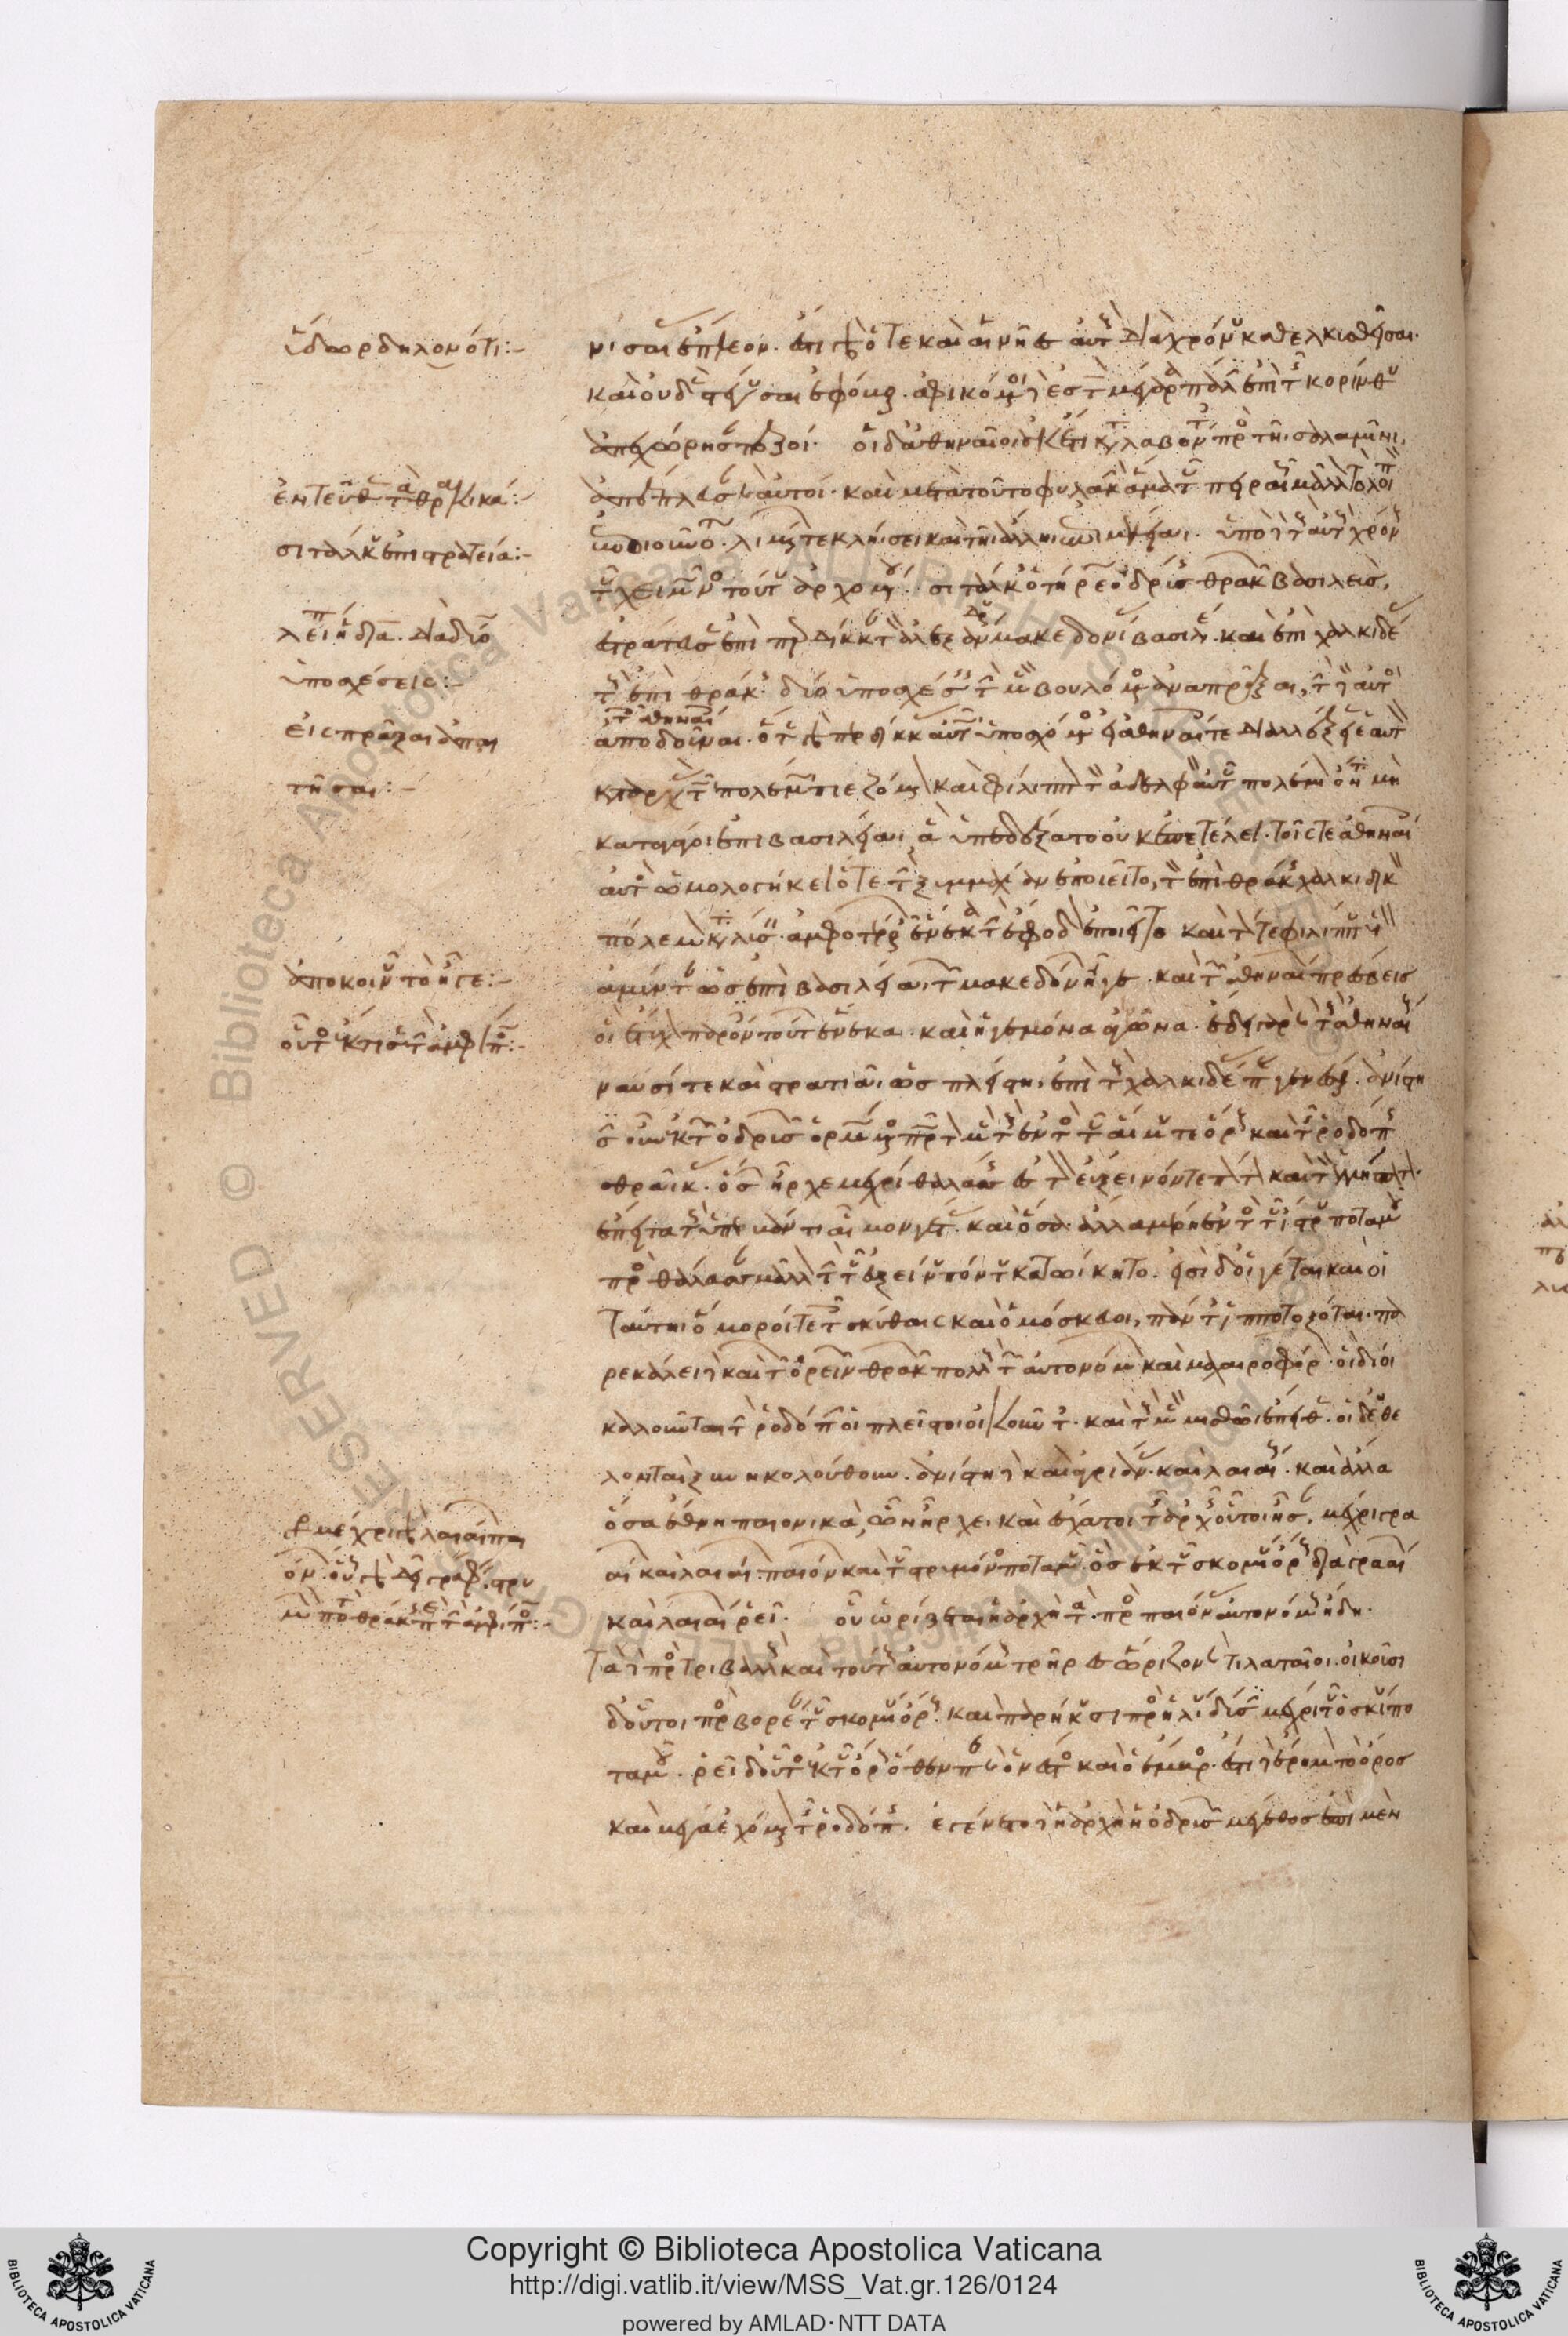 ὕδωρ δηλονότι:-
ἐντεῦθεν τὰ θρακικά:-
σιτάλκου ἐπιστρατεία:-
λείπει ἡ διὰ. διὰ δύο
ὑποσχέσεις:-
εἰσπρᾶξαι ἀπαι
τῆσαι:-
ἀποκοινοῦ τὸ ἦγε:-
οὗτος ἔκτισε τὴν ἀμφίπολιν:-
μέχρι γὰρ λαιαίων παι
όνων
νισαι ἔπλεον. ἔστι γὰρ ὅτε καὶ αἱ νῆες αὐτοὺς διὰ χρόνου καθελκυσθεῖσαι.
καὶ οὐδὲν στέγουσαι ἐφόβουν. ἀφικόμενοι δὲ ἐς τὰ μέγαρα πάλιν ἐπὶ τῆς κορίνθου
ἀπεχώρησαν πεζοί. οἱ δ' ἀθηναῖοι οὐκέτι καταλαβόντες πρὸς τῇ σαλαμῖνι,
ἀπέπλευσαν καὶ αὐτοί. καὶ μετὰ τοῦτο φυλακὴν ἅμα τοῦ πειραιῶς μᾶλλον τὸ λοιπὸν
ἐποιοῦντο. λιμένων τε κλήσει καὶ τῇ ἄλλῃ ἐπιμελείᾳ. ὑπὸ δὲ τοὺς αὐτοὺς χρόνους
τοῦ χειμῶνος τούτου ἀρχομένου. σιτάλκης ὁ τήρεω ὀδρύσης θρακῶν βασιλεὺς,
ἐστράτευσεν ἐπὶ περδίκκαν τὸν ἀλεξάνδρου μακεδονίας βασιλέα. καὶ ἐπὶ χαλκιδέας
τοὺς ἐπὶ θράκης. δύο ὑποσχέσεις τὴν μὲν βουλόμενος ἀναπρᾶξαι, τὴν δὲ αὐτὸς
ἀποδοῦναι. ὅ τε γὰρ περδίκκας αὐτῷ ὑποσχόμενος εἰ ἀθηναίοις τε διαλλάξειεν ἑαυτὸν
κατ' ἀρχὰς τῷ πολέμῳ πιεζόμενον καὶ φίλιππον τὸν ἀδελφὸν αὐτοῦ πολέμιον ὄντα μὴ
καταγάγοι ἐπὶ βασιλείᾳ, ἃ ὑπεδέξατο οὐκ ἐπετέλει. τοῖς τε ἀθηναίοις
αὐτὸς ὡμολογήκει ὅτε τὴν ξυμμαχίαν ἐποιεῖτο, τὸν ἐπὶ θράκης χαλκιδικὸν
πόλεμον καταλύσειν. ἀμφοτέρων οὖν ἕνεκα τὴν ἔφοδον ἐποιεῖτο καὶ τόν τε φιλίππου υἱὸν
ἀμύνταν ὡς ἐπὶ βασιλείᾳ, τῶν μακεδόνων ἦγε. καὶ τῶν ἀθηναίων πρέσβεις
οἳ ἔτυχον παρόντες τούτων ἕνεκα. καὶ ἡγεμόνα ἅγνωνα. ἔδει γὰρ καὶ τοὺς ἀθηναίους
ναυσί τε καὶ στρατιᾷ ὡς πλείστῃ, ἐπὶ τοὺς χαλκιδέας παραγενέσθαι. ἀνίστη
σιν οὖν ἐκ τῶν ὀδρυσῶν ὁρμώμενος πρῶτον μὲν τοὺς ἐντὸς τοῦ αἵμου τε ὄρους καὶ τῆς ῥοδόπης
θρᾶκας. ὅσων ἦρχε μέχρι θαλάσσης ἐς τὸν εὔξεινόν τε πόντον καὶ τὸν ἑλλήσποντον.
ἔπειτα τοὺς ὑπερβάντι αἷμον γέτας. καὶ ὅσα ἄλλα μέρη ἐντὸς τοῦ ἴστρου ποταμοῦ
πρὸς θάλασσαν μᾶλλον τὴν τοῦ εὐξείνου πόντου κατῴκητο. εἰσὶ δ' οἱ γέται καὶ οἱ
ταύτῃ ὅμοροί τε τοῖς σκύθαις καὶ ὁμόσκευοι, πάντες ἱπποτοξόται. πα
ρεκάλει δὲ καὶ τῶν ὀρεινῶν θρακῶν πολλοὺς τῶν αὐτονόμων καὶ μαχαιροφόρων. οἳ δῖοι
καλοῦνται τὴν ῥοδόπην οἱ πλεῖστοι οἰκοῦντες. καὶ τοὺς μὲν μισθῷ ἔπειθεν. οἱ δ' ἐθε
λονταὶ ξυνηκολούθουν. ἀνίστη δὲ καὶ ἀγριᾶνας καὶ λαιαίους. καὶ ἄλλα
ὅσα ἔθνη παιονικὰ, ὧν ἦρχε, καὶ ἔσχατοι τῆς ἀρχῆς οὗτοι ἦσαν, μέχρι γρα
αίων καὶ λαιαίων παιόνων καὶ τοῦ στρυμόνος ποταμοῦ. ὃς ἐκ τοῦ σκομίου ὄρους διὰ γρααίων
καὶ λαιαίων ῥεῖ. οὗ ὡρίζετο ἡ ἀρχὴ τὰ πρὸς παίονας αὐτονόμους ἤδη.
τὰ δὲ πρὸς τριβαλλοὺς καὶ τούτους αὐτονόμους τρῆρες ὥριζον καὶ τιλαταῖοι. οἰκοῦσι
δ' οὗτοι πρὸς βορέαν τοῦ σκομίου ὄρους. καὶ παρήκουσι πρὸς ἡλίου δύσιν μέχρι τοῦ ὀσκίου πο
ταμοῦ. ῥεῖ δ' οὗτος ἐκ τοῦ ὄρους ὅθενπερ καὶ ὁ νέστος καὶ ὁ ἕβρος. ἔστι δὲ ἐρῆμον τὸ ὄρος
καὶ μέγα ἐχόμενον τῆς ῥοδόπης. ἐγένετο δὲ ἡ ἀρχὴ ἡ ὀδρυσῶν μέγεθος ἐπὶ μὲν
Copyright © Biblioteca Apostolica Vaticana
http://digi.vatlib.it/view/MSS_Vat.gr.126/0124
powered by AMLAD·NTT DATA